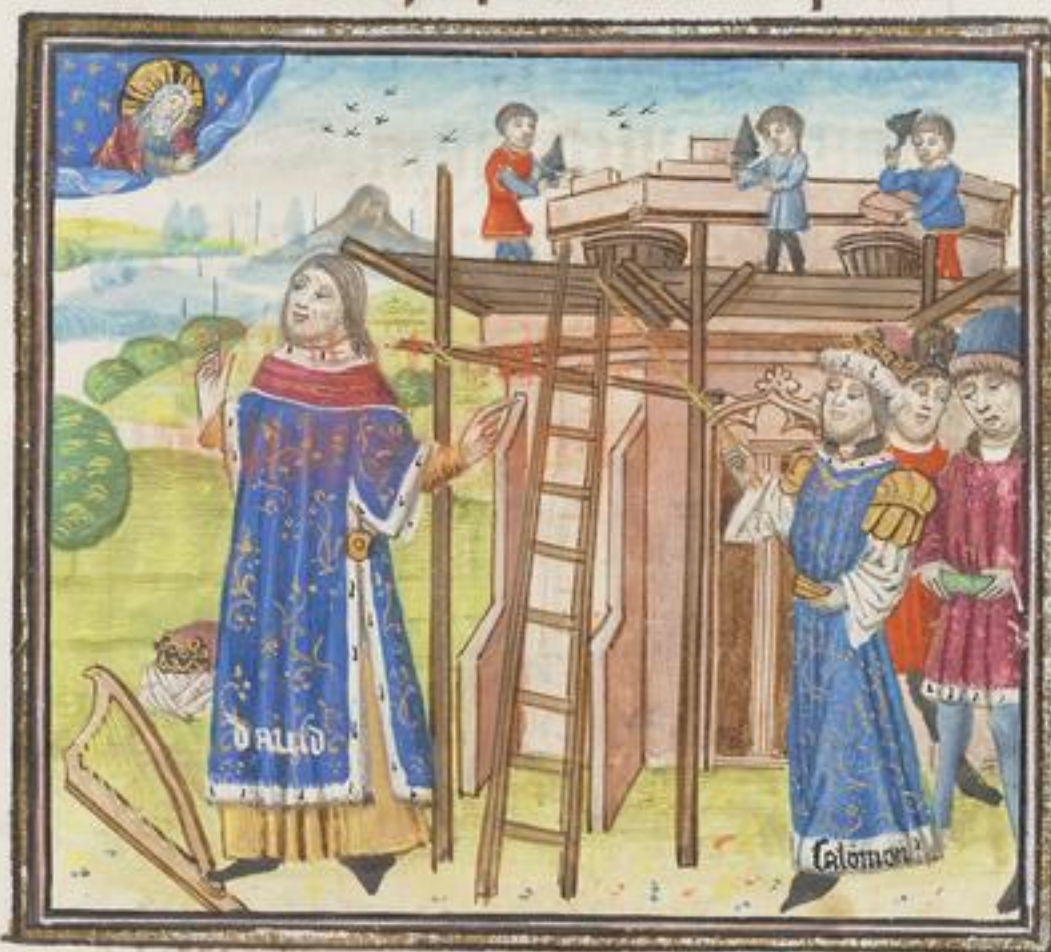 dauid
Salomon